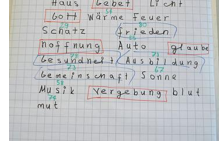 Haus Gebet Licht
Gott Wärme Feuer
Schatz frieden
hoffnung Auto glaube
Gesundheit Ausbildung
Gemeinschaft Sonne
Musik vergebung blut
mut